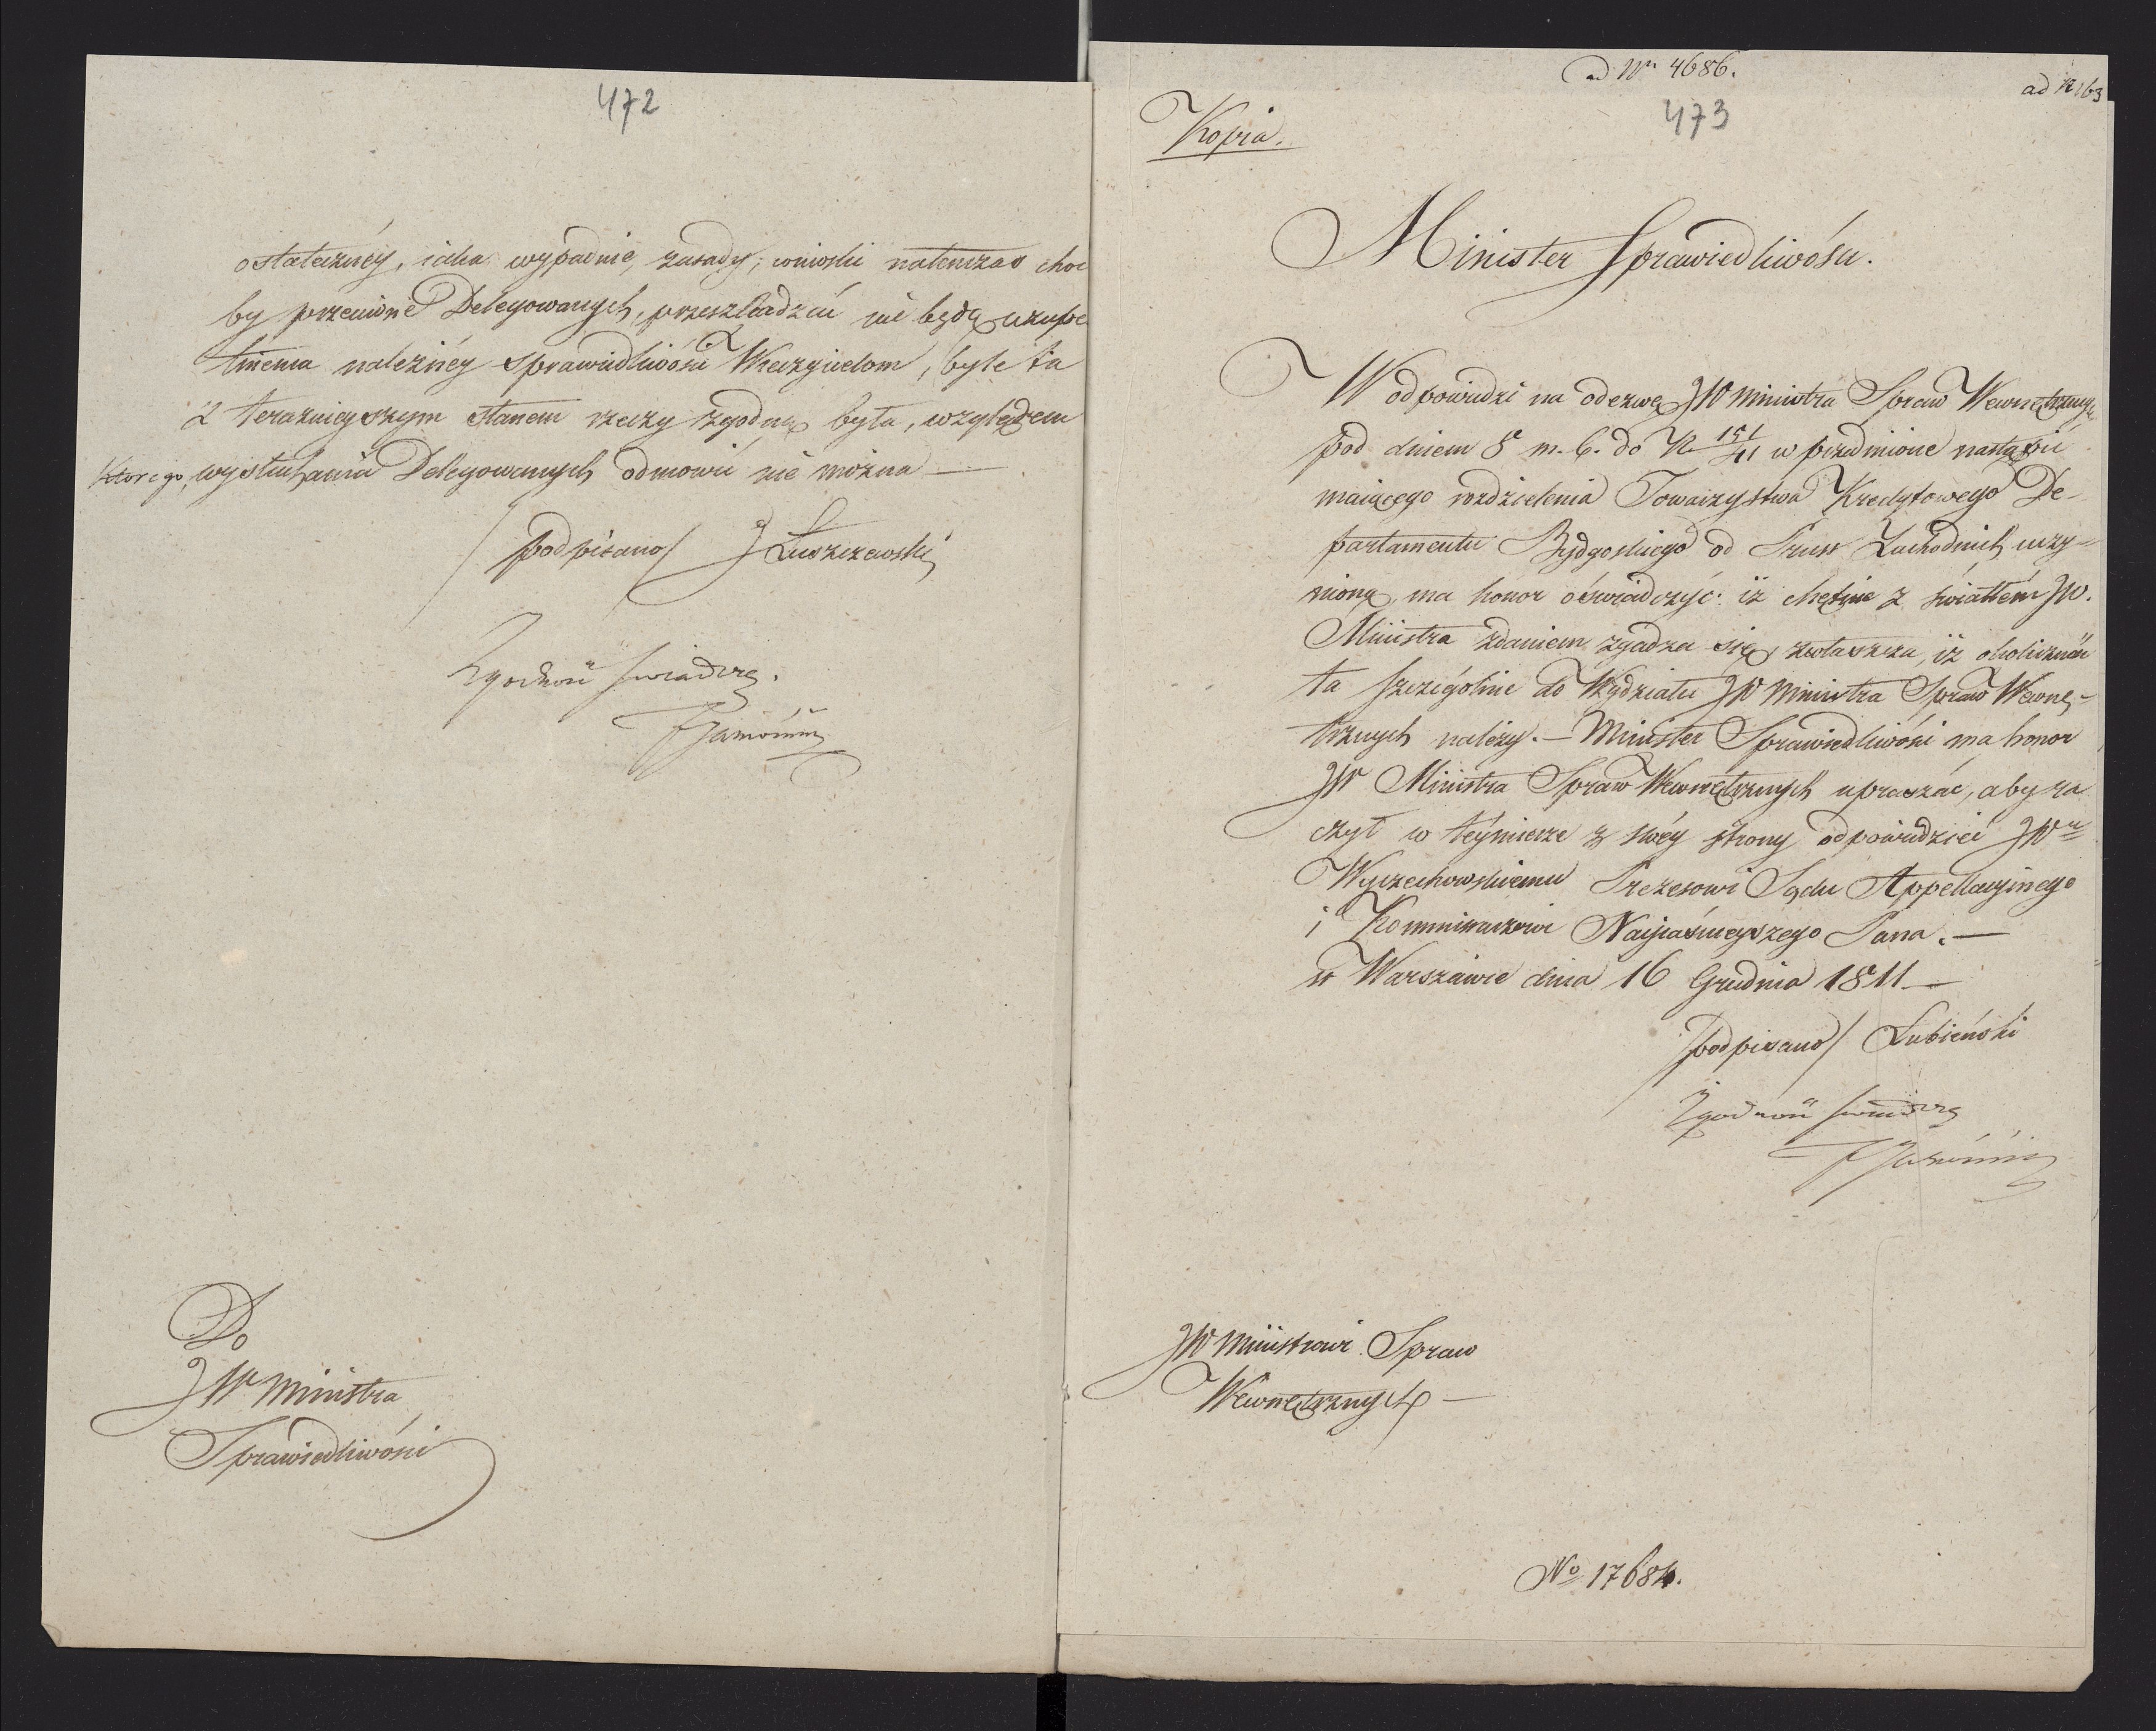 472
ostateczney, iaka wypadnie, zasady; wnioski natenczas choć
by przeciwne Delegowanych, przeszkadzać nie będą uzupe
łnienia należnéy sprawiedliwości Wierzycielom, byle ta
z teraźnieyszym stanem rzeczy zgodną była, względem
którego, wysłuchania Delegowanych odmowić nie można —
/podpisano/ J Łuszczewski
Zgodność świadczę.
Do
JW Ministra
Sprawiedliwości
ad Nrn 4686.
ad N 163
473
Kopia.
Minister Sprawiedliwości.
W odpowiedzi na odezwę JW Ministra Spraw Wewnętrznych
pod dniem 8 m. b. do N 151/41 w przedmiocie nastąpić
maiącego rozdzielenia Towarzystwa Kredytowego De-
partamentu Bydgoskiego od Pruss Zachodnich uczy-
nioną, ma honor oświadczyć: iż chętnie z światłém JW.
Ministra zdaniem zgadza się, zwłaszcza, iż okoliczność
ta szczególnie do Wydziału JW Ministra Spraw Wewnę-
trznych należy. — Minister Sprawiedliwości ma honor
JW Ministra Spraw Wewnętrznych upraszać, aby ra
czył w téymierze z swéy strony odpowiedzieć JWu
Wyczechowskiemu Prezesowi Sądu Appellacyinego
i Kommissarzowi Nayiaśnieyszego Pana. —
w Warszawie dnia 16 Grudnia 1811 —
/podpisano/ Łubieński
Zgodność świadczę
JW Ministrowi Spraw
Wewnętrznych —
No 17684.